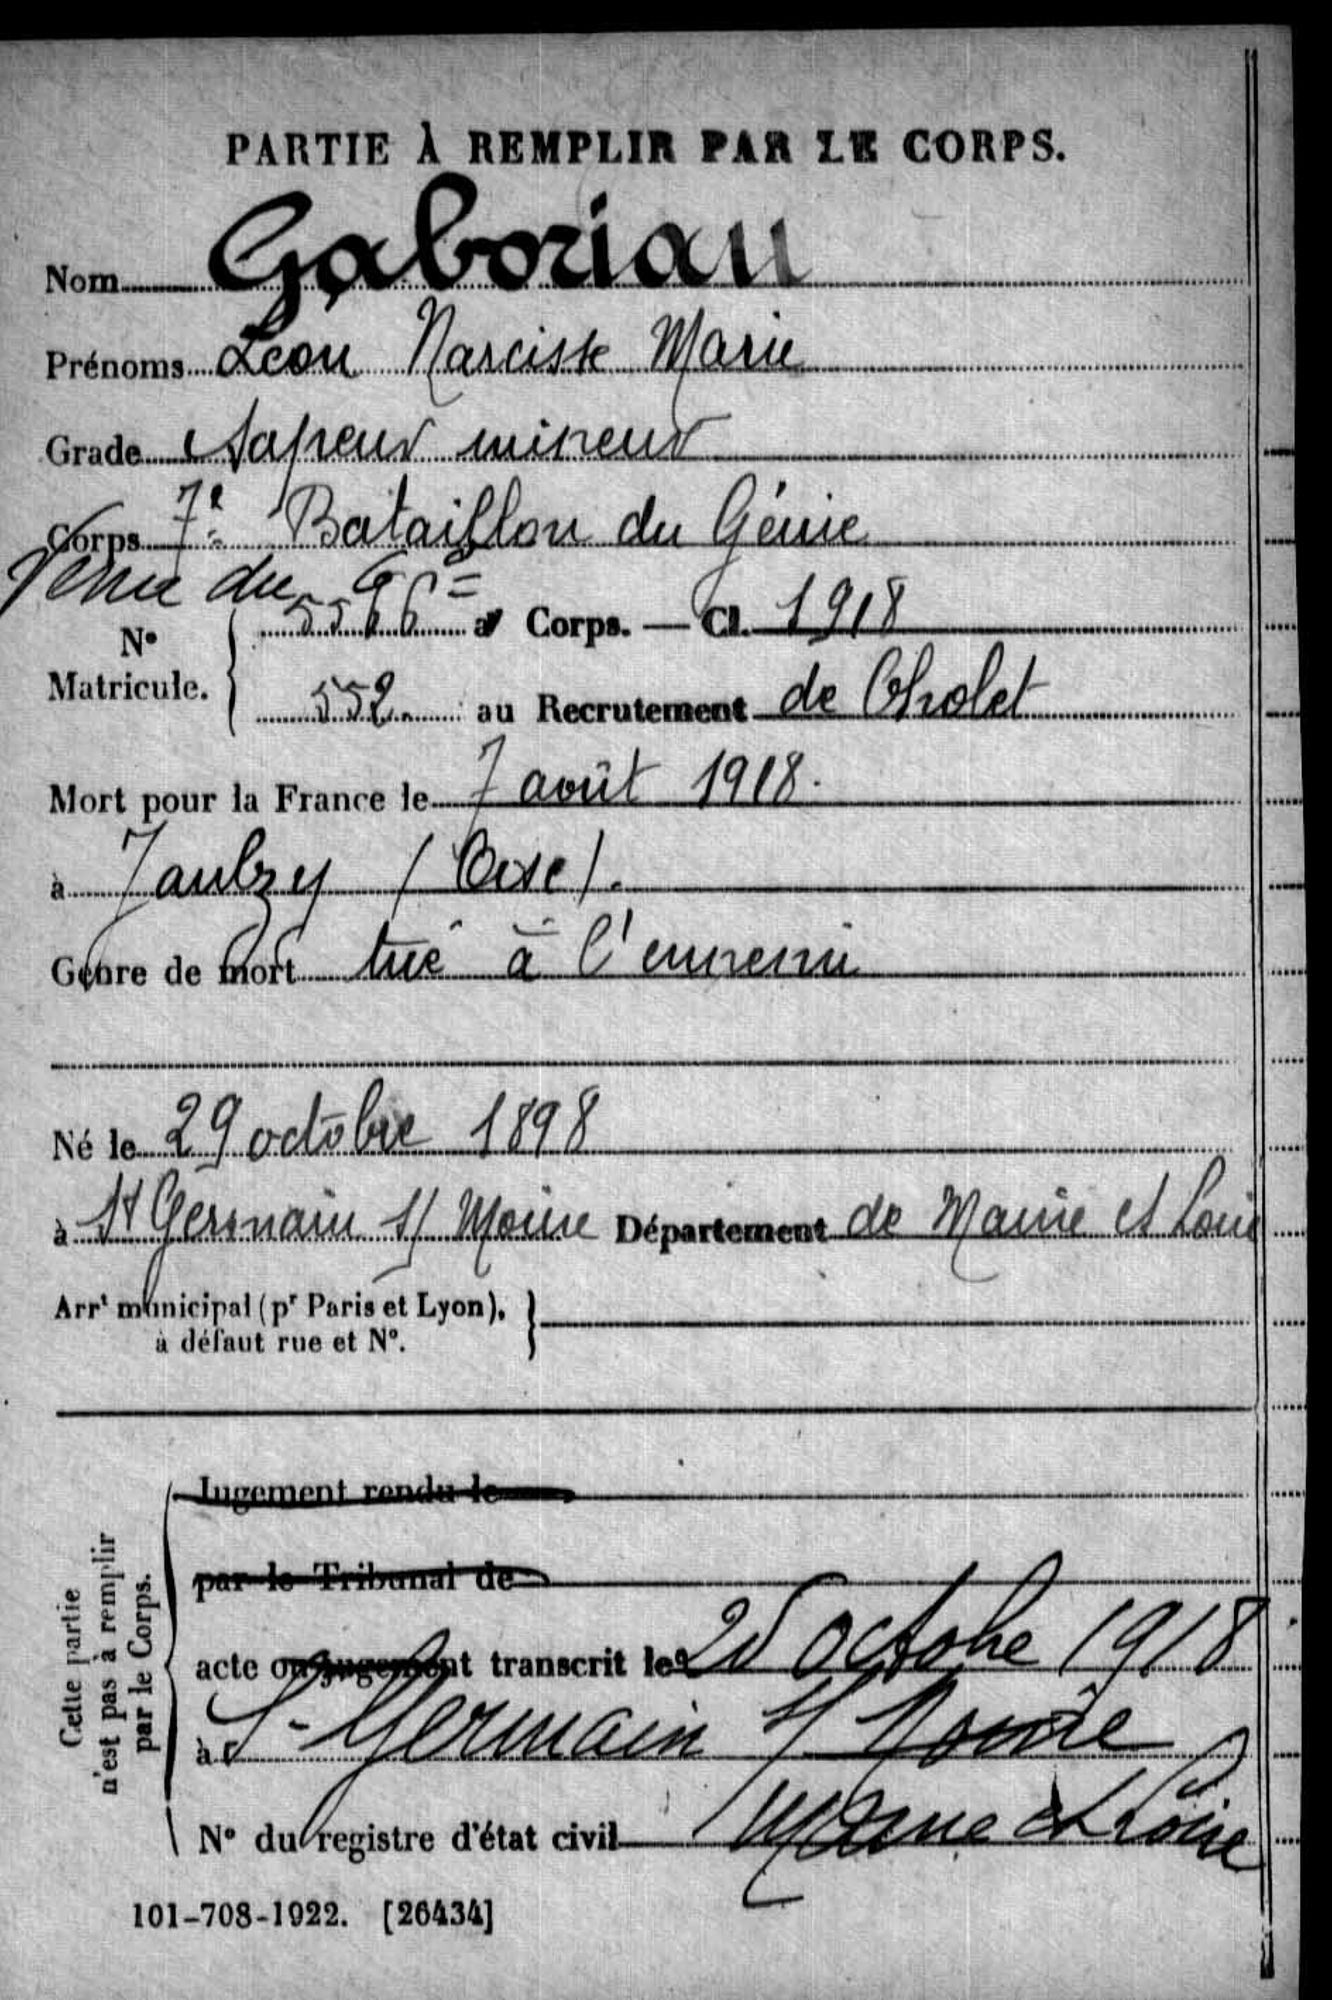 PARTIE À REMPLIR PAR LE CORPS.
Nom Gaboriau
Prénoms Léon Narcisse Marie
Grade Sapeur mineur
Corps 7e Bataillon du Génie
Venu du 6e
N° Matricule. 5566 au Corps. — Cl. 1918
552 au Recrutement de Cholet
Mort pour la France le 7 août 1918.
à Jaulzy (Oise).
Genre de mort tué à l'ennemi
Né le 29 octobre 1898
à St Germain s/ Moine Département de Maine et Loire
Arrt municipal (pr Paris et Lyon),
à défaut rue et N°.
Cette partie n'est pas à remplir par le Corps.
Jugement rendu le
par le Tribunal de
acte ou jugement transcrit le 25 octobre 1918
à St Germain s/ Moine
N° du registre d'état civil Maine et Loire
101-708-1922. [26434]